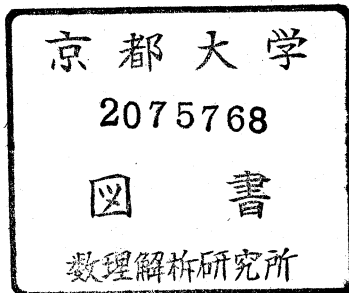 京都大学
2075768
図書
数理解析研究所